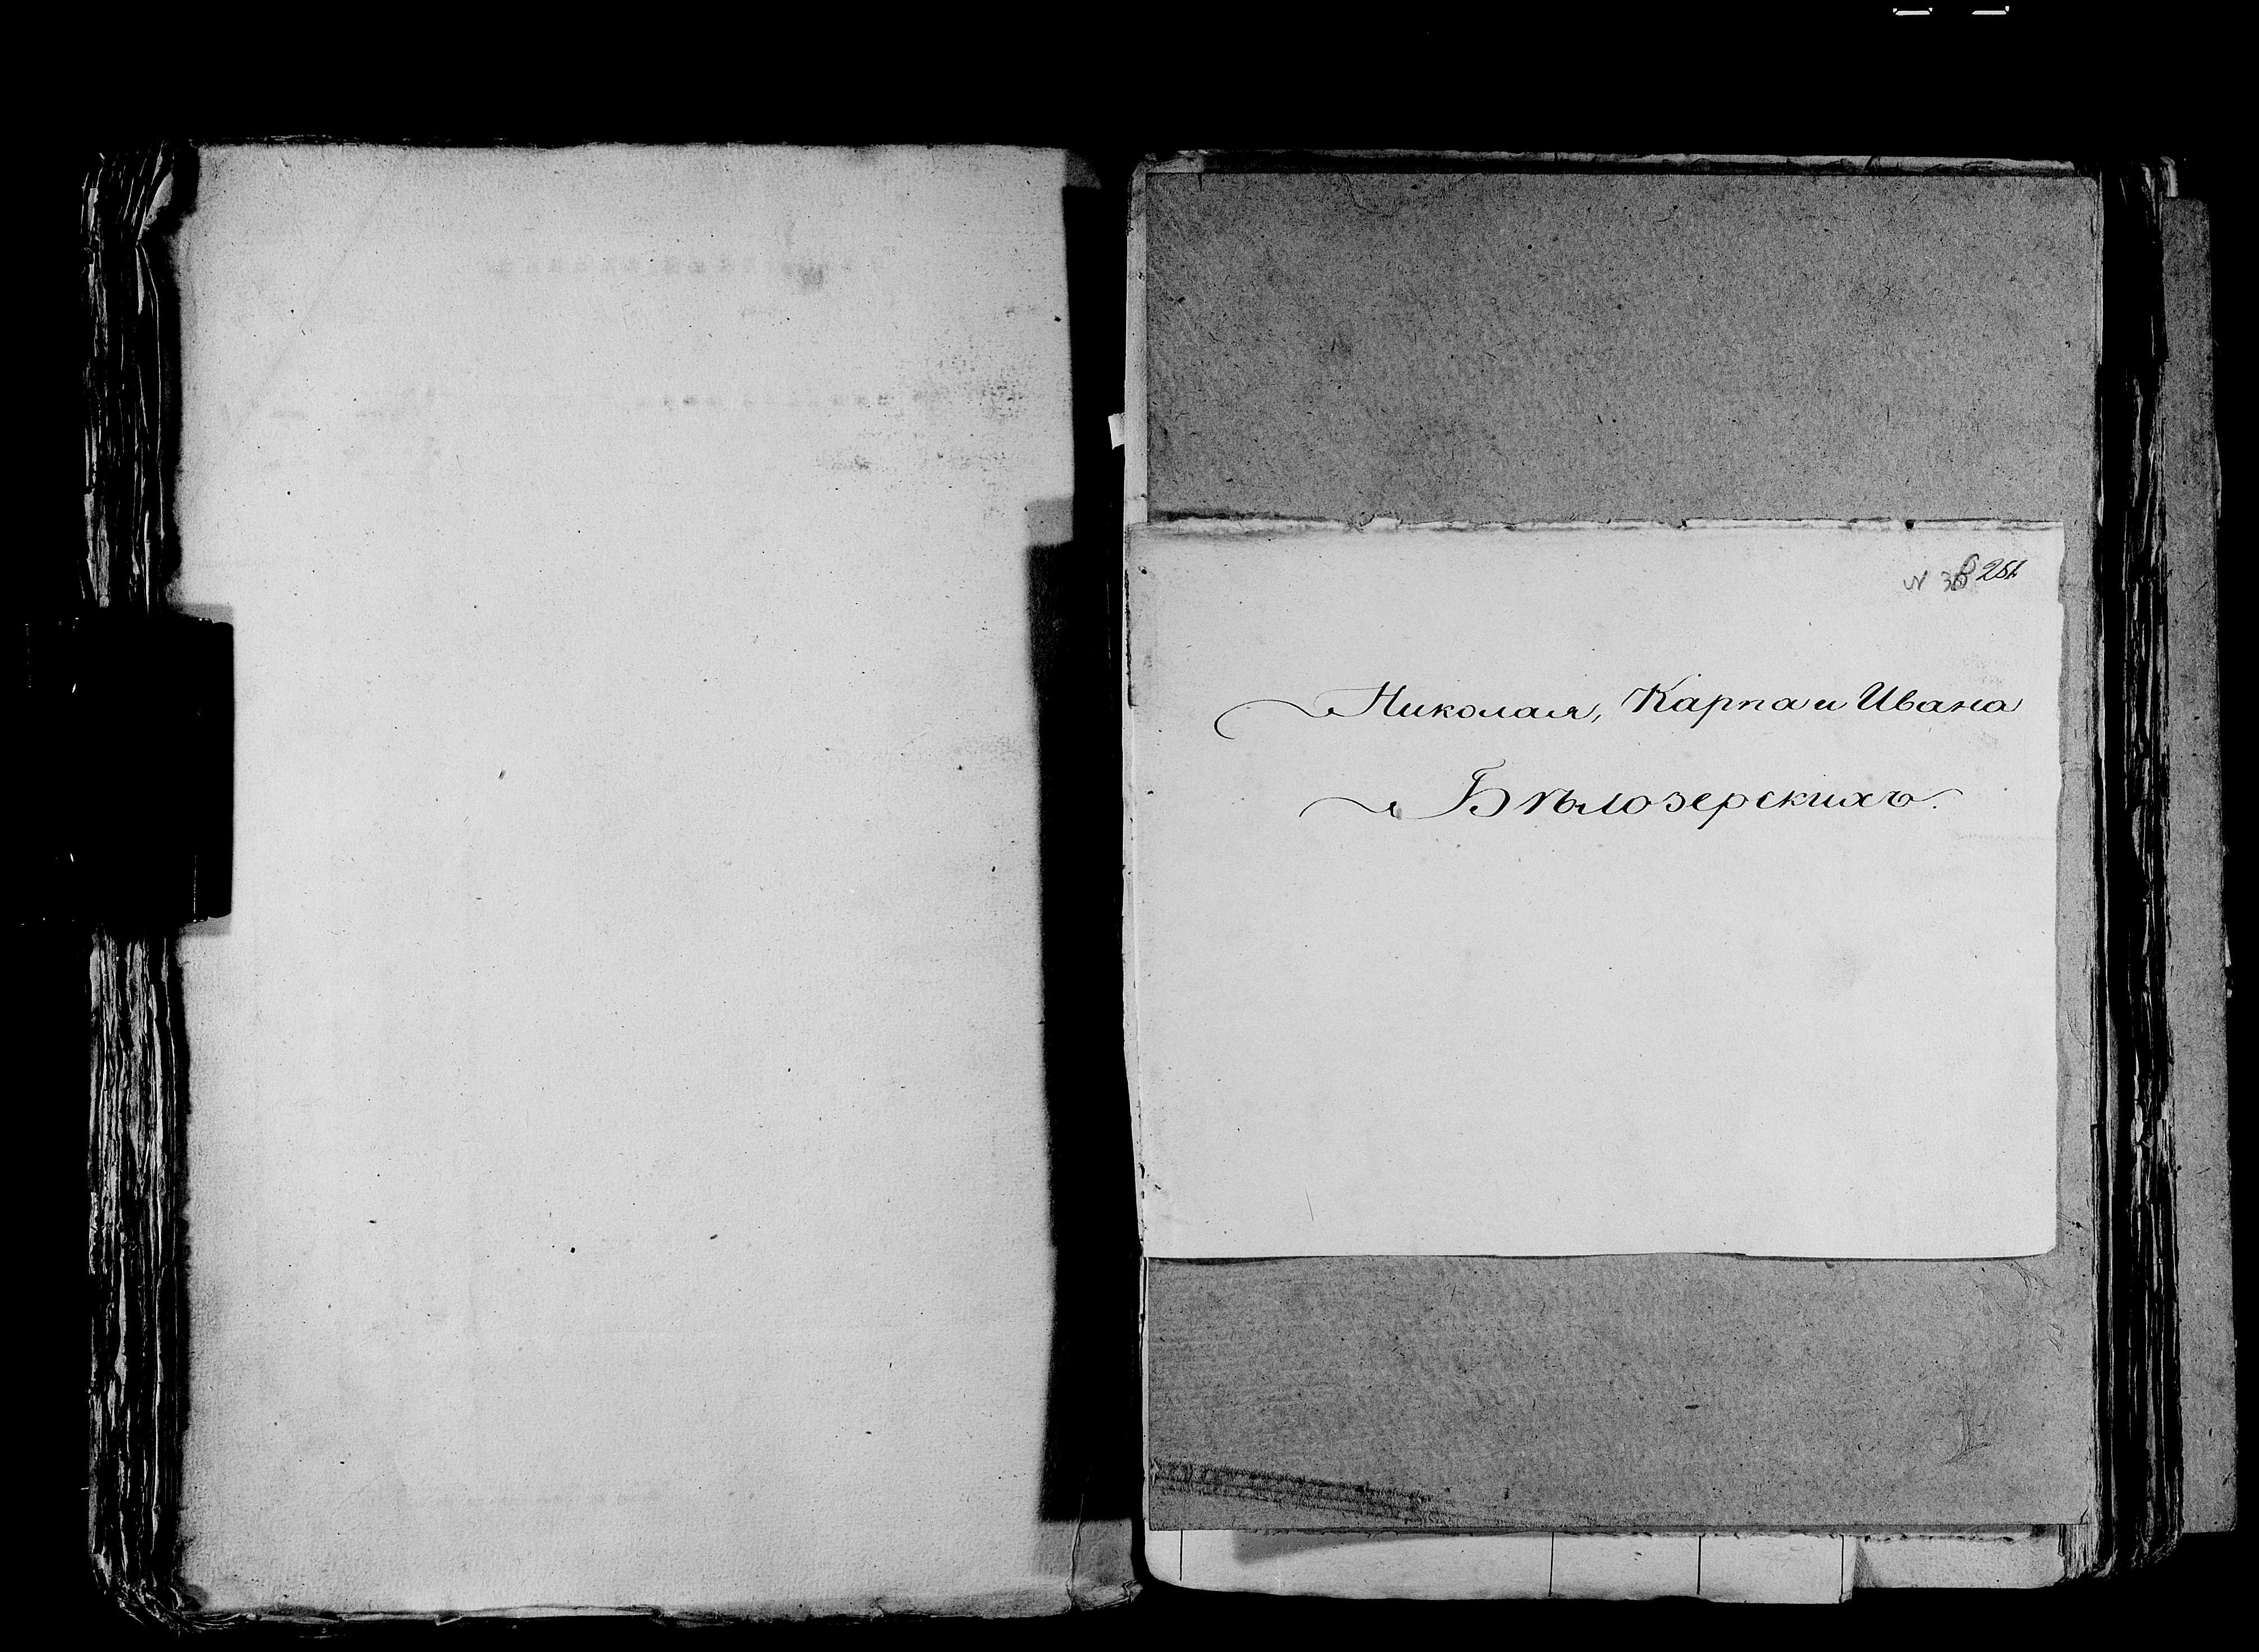 281
Николая, Карпа и Ивана
Бѣлозерскихъ.